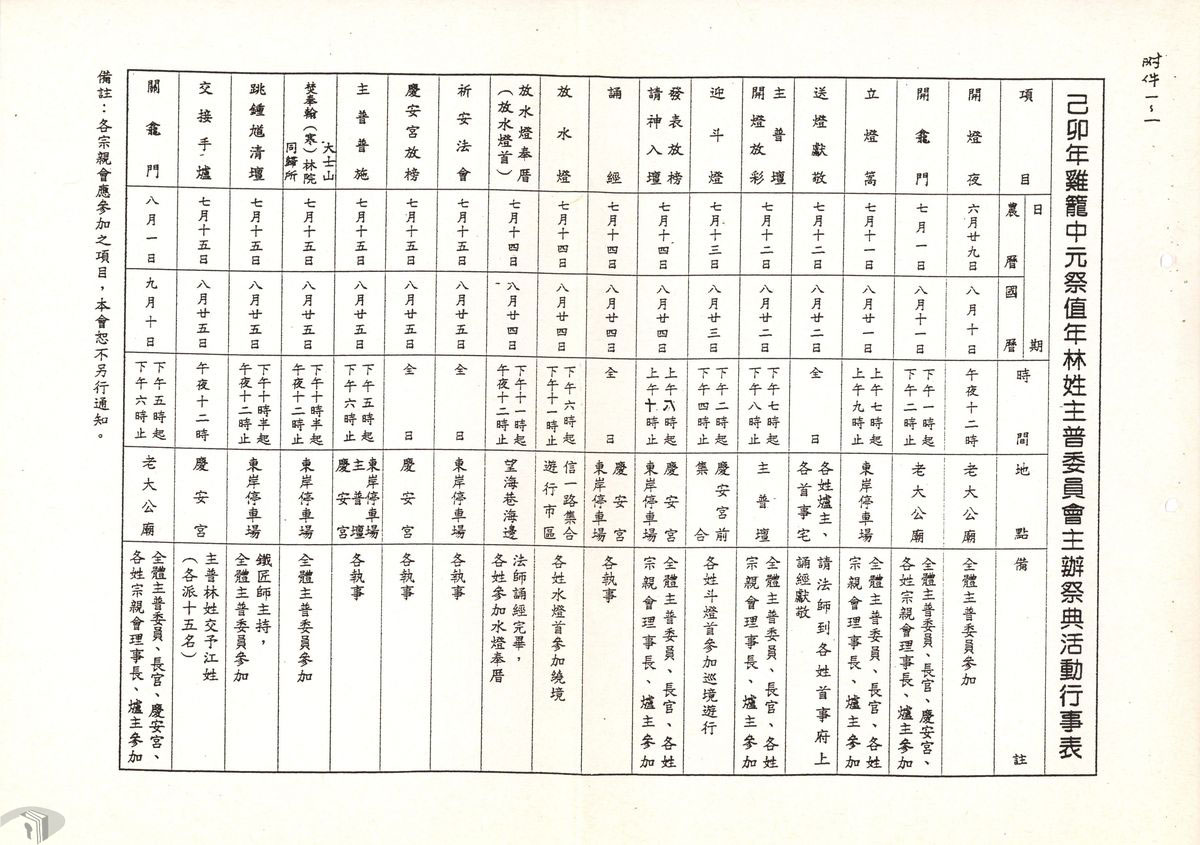 附件一~一
己卯年雞籠中元祭值年林姓主普委員會主辦祭典活動行事表
項目
日期
農曆
國曆
時間
地點
備註
開燈夜
六月廿九日
八月十日
午夜十二時
老大公廟
全體主普委員參加
開龕門
七月一日
八月十一日
下午一時起
下午二時止
老大公廟
全體主普委員、長官、慶安宮、
各姓宗親會理事長、爐主參加
立燈篙
七月十一日
八月廿一日
上午七時起
上午九時止
東岸停車場
全體主普委員、長官、各姓
宗親會理事長、爐主參加
送燈獻敬
七月十二日
八月廿二日
全日
各姓爐主、
各首事宅
請法師到各姓首事府上
誦經獻敬
主普壇
開燈放彩
七月十二日
八月廿二日
下午七時起
下午八時止
主普壇
全體主普委員、長官、各姓
宗親會理事長、爐主參加
迎斗燈
七月十三日
八月廿三日
下午二時起
下午四時止
慶安宮前
集合
各姓斗燈首參加巡境遊行
發表放榜
請神入壇
七月十四日
八月廿四日
上午八時起
上午十時止
慶安宮
東岸停車場
全體主普委員、長官、各姓
宗親會理事長、爐主參加
誦經
七月十四日
八月廿四日
全日
慶安宮
東岸停車場
各執事
放水燈
七月十四日
八月廿四日
下午六時起
下午十一時止
信一路集合
遊行市區
各姓水燈首參加繞境
放水燈奉厝
(放水燈首)
七月十四日
八月廿四日
下午十一時起
午夜十二時止
望海巷海邊
法師誦經完畢，
各姓參加水燈奉厝
祈安法會
七月十五日
八月廿五日
全日
東岸停車場
各執事
慶安宮放榜
七月十五日
八月廿五日
全日
慶安宮
各執事
主普普施
七月十五日
八月廿五日
下午五時起
下午六時止
東岸停車場
主普壇
慶安宮
各執事
大士山
焚奉翰(寒)林院
同歸所
七月十五日
八月廿五日
下午十時半起
午夜十二時止
東岸停車場
全體主普委員參加
跳鍾馗清壇
七月十五日
八月廿五日
下午十時半起
午夜十二時止
東岸停車場
鐵匠師主持，
全體主普委員參加
交接手爐
七月十五日
八月廿五日
午夜十二時
慶安宮
主普林姓交予江姓
(各派十五名)
關龕門
八月一日
九月十日
下午五時起
下午六時止
老大公廟
全體主普委員、長官、慶安宮、
各姓宗親會理事長、爐主參加
備註：各宗親會應參加之項目，本會恕不另行通知。